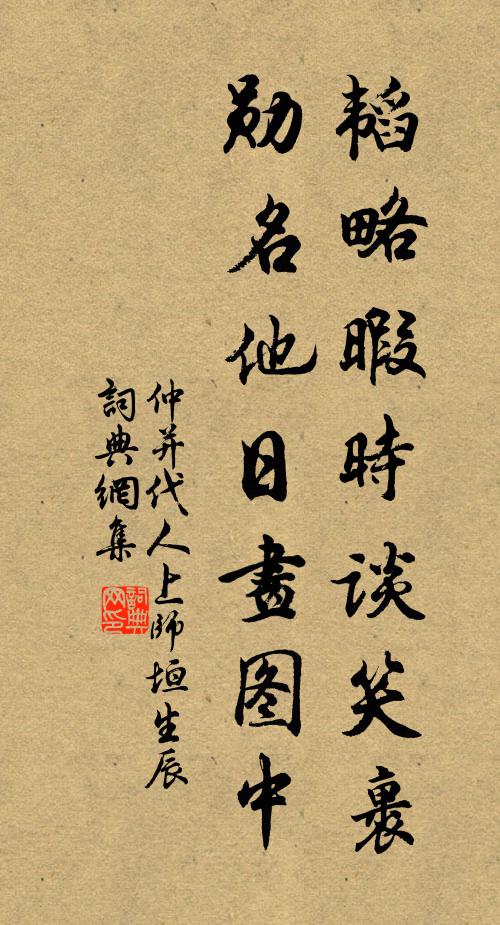 韬略暇時谈笑裏
勋名他日畫图中
仲并代人上師垣生辰
詞典網集
詞典網印